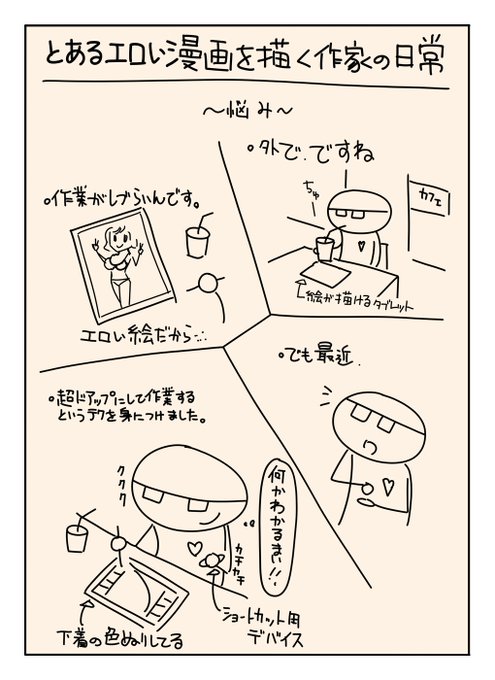 とあるエロい漫画を描く作家の日常
〜悩み〜
。外で、ですね
ちゅー
カフェ
絵が描けるタブレット
。作業がしづらいんです。
エロい絵だから…
。でも最近、
。超ドアップにして作業する
というテクを身につけました。
ククク
何かわかるまい!!
カチカチ
ショートカット用
デバイス
下着の色ぬりしてる